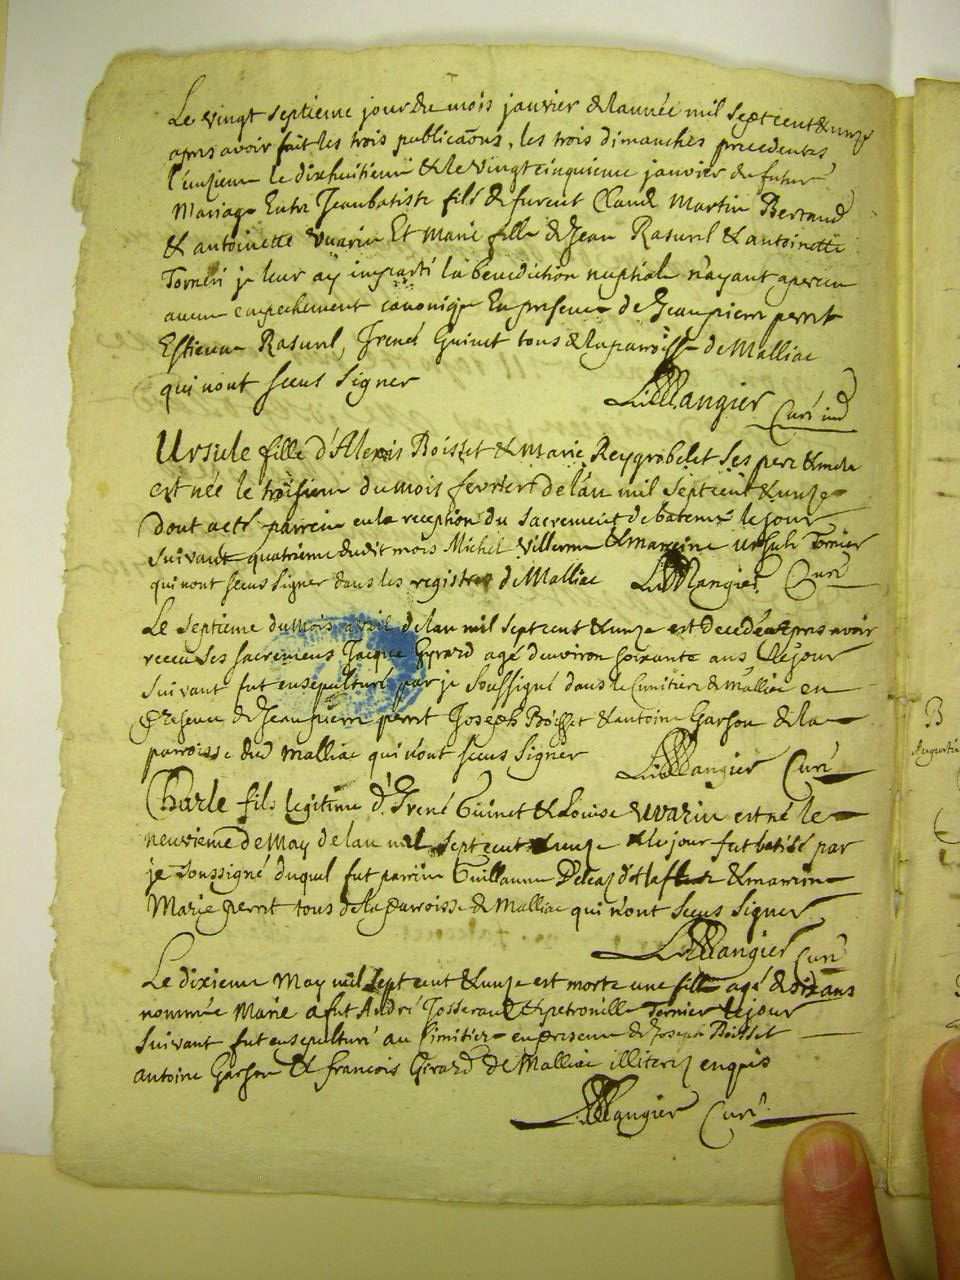 Le vingt septieme jour du mois janvier & lannée mil septcent & unze
apres avoir fait les trois publicaõns, les trois dimanches precedentes
l'unzieme le dixhuitieme & le vingtcinquieme janvier du futur
Mariage Entre Jeanbatiste fils & furent Claude Martin Bertrand
& antoinette vuarin Et Marie fille & Jean Rasurel & antoinette
Tornier je leur aÿ imparti la benediction nuptiale n'ayant aperceu
aucun empechement canonique En presence de Jeanpierre perret
Estienne Rasurel, Irené Guinet tous & la parroisse de Malliac
qui n'ont sceus signer
Mangier Curé
Ursule fille d'Alexis Boisset & Marie Reygrobelet ses pere & mere
est née le troisieme du mois fevrier de lan mil septcent & unze
dont a eté parrein en la reception du sacrement de bateme le jour
suivant quatrieme dudit mois Michel villerme & marreine Ursule Tornier
qui n'ont sceus signer dans les registres de Malliac Mangier Curé
Le septieme du mois avril de lan mil septcent & unze est decedé apres avoir
receu ses sacremens Jacque Gyrard agé denviron soixante ans, & le jour
suivant fut ensepulturé par je soussigné dans le cimitiere de Malliac en
presence de Jeanpierre perret Joseph Boisset & antoine Garson de la
parroisse dud Malliac qui n'ont sceus signer Mangier Curé
Charle fils legitime d'Irené Guinet & Louise vuarin est né le
neuvieme de May de lan mil septcent & unze & le jour fut batisé par
je soussigné duquel fut parrein Guillaume & marreine
Marie perret tous de la parroisse de Malliac qui n'ont sceus signer
Mangier Curé
Le dixieme May mil septcent & unze est morte une fille agé & dix ans
nommée Marie a fut André Josserand & petronille Tornier & le jour
suivant fut ensepulturé au cimitiere en presence de Joseph Boisset
antoine Garson & francois Girard de Malliac illiterez enquis
Mangier Curé
B